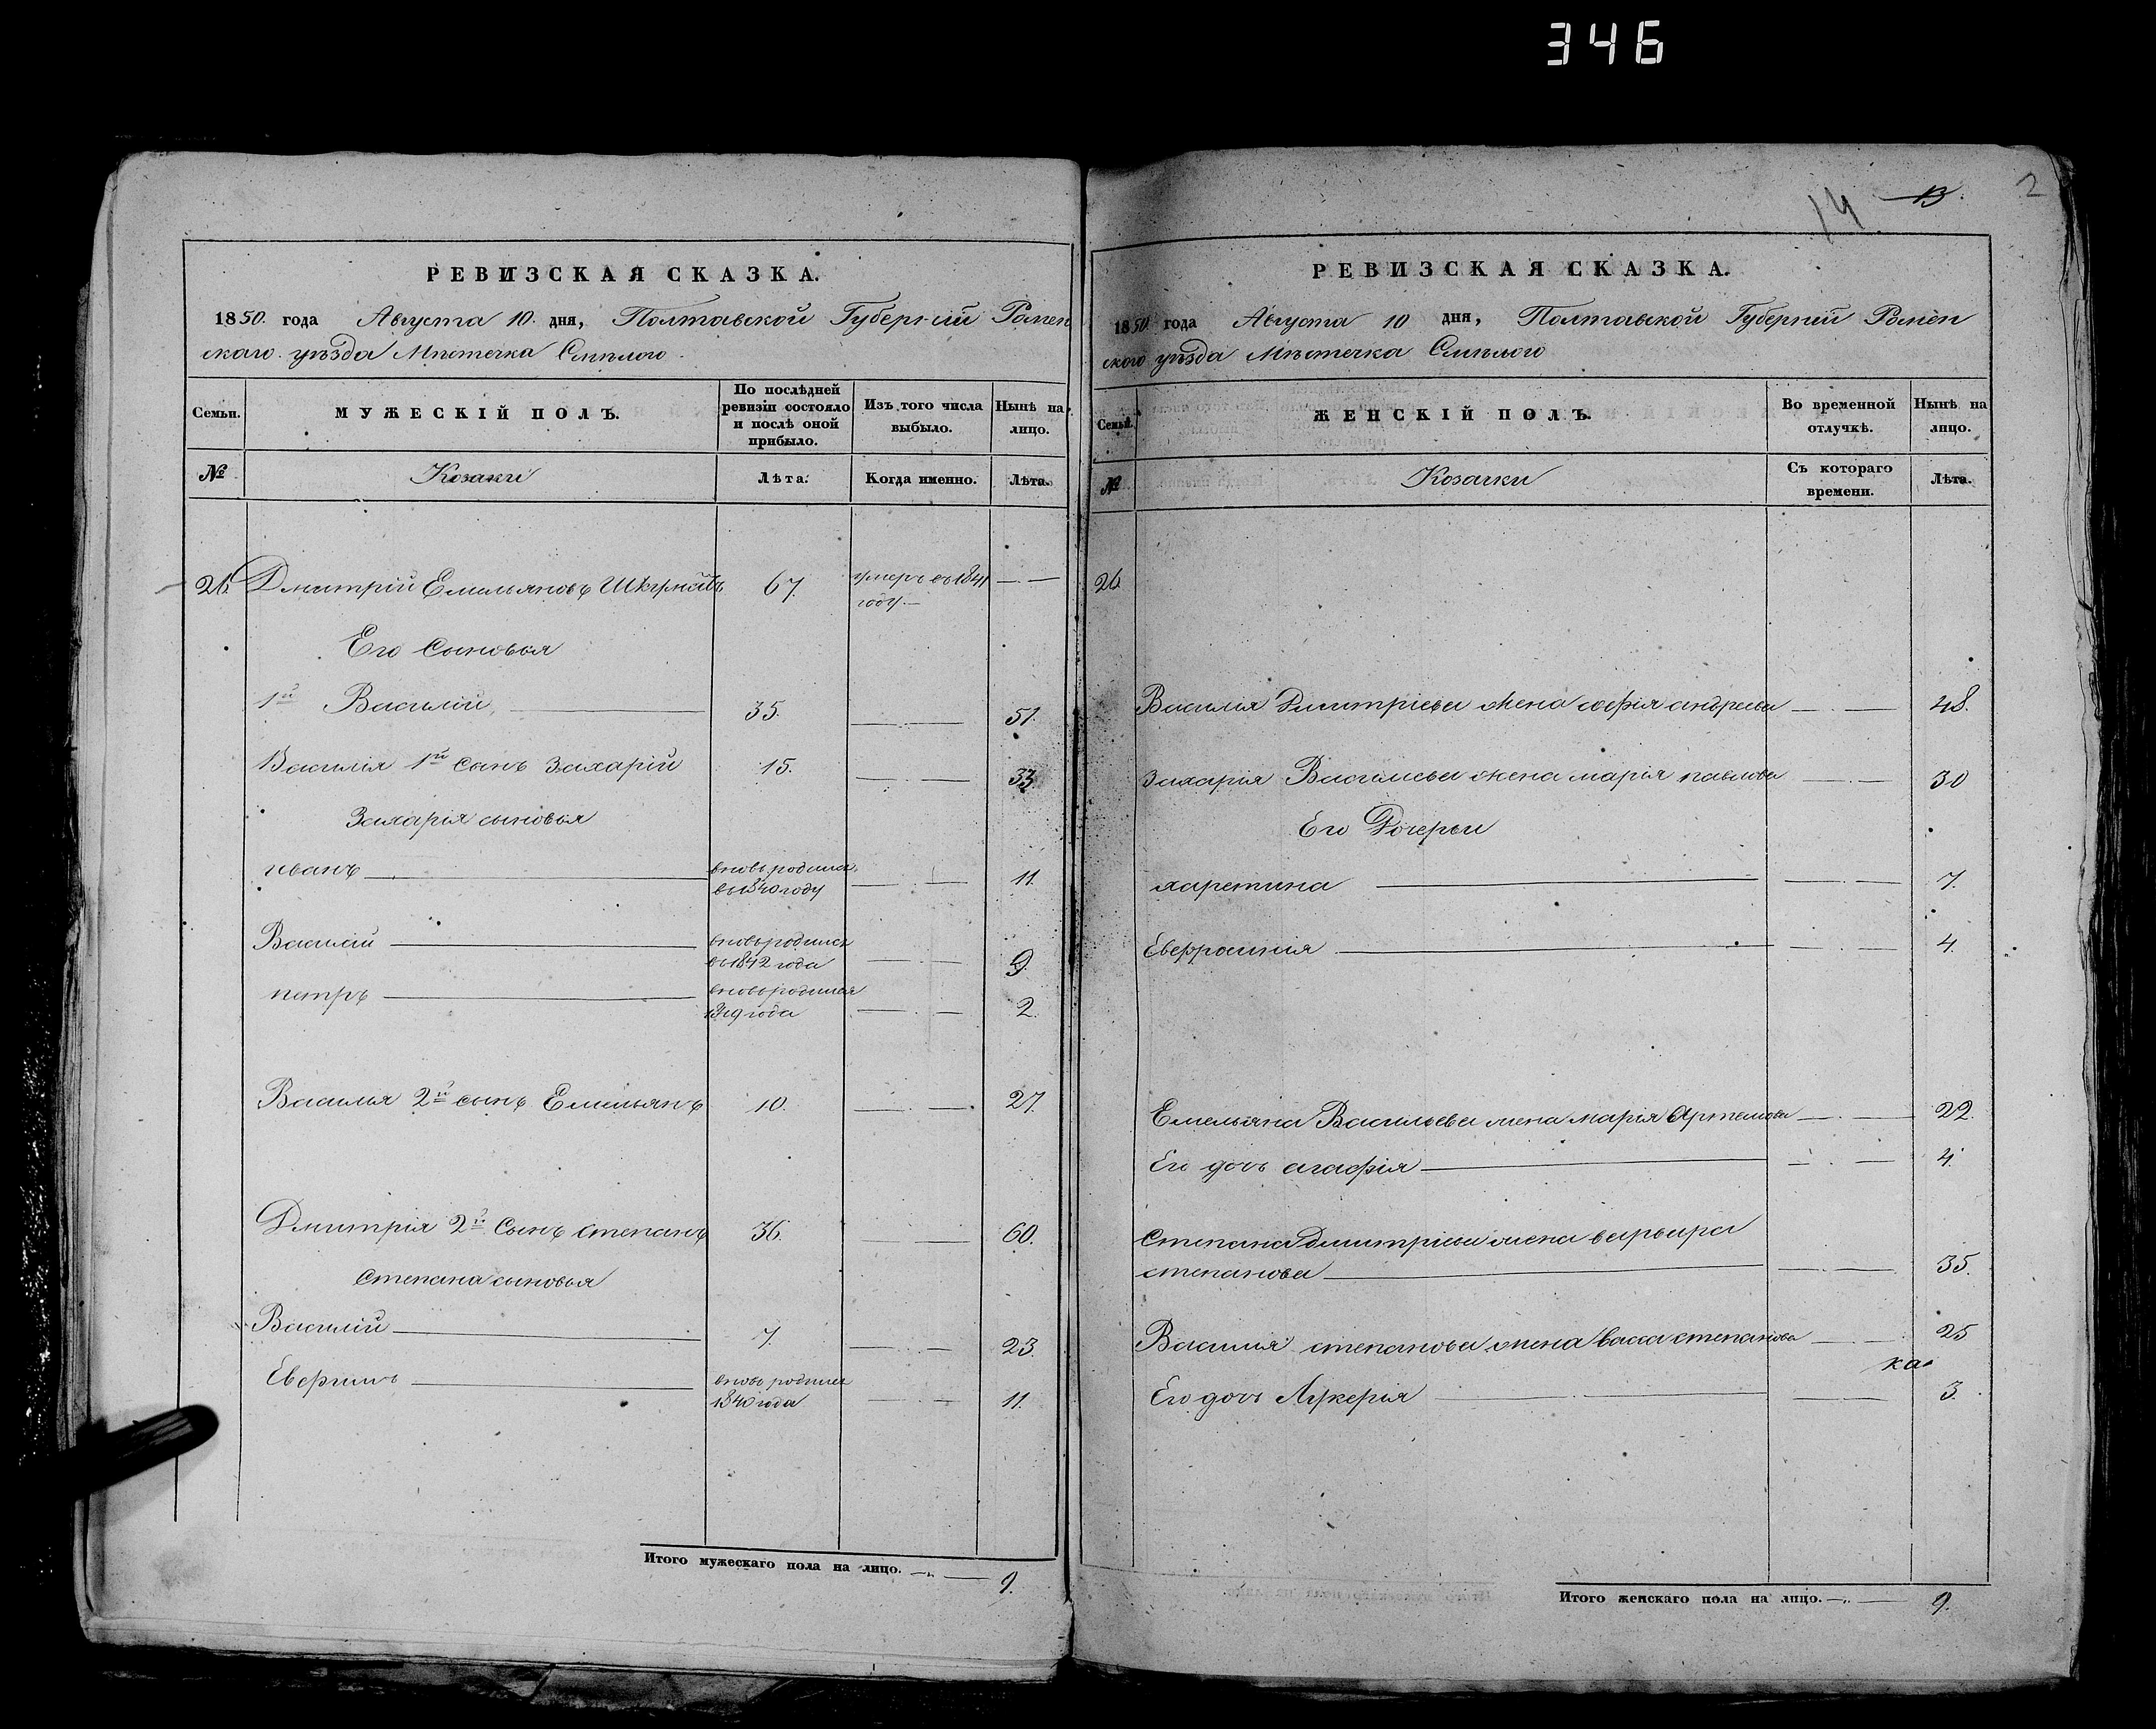 346
РЕВИЗСКАЯ СКАЗКА.
1850. года Августа 10. дня, Полтавской Губерніи Ромен
скаго уѣзда Мѣстечка Смѣлого
Семьи. МУЖЕСКІЙ ПОЛЪ. По послѣдней ревизіи состояло и послѣ оной прибыло. Изъ того числа выбыло. Нынѣ на лицо.
№ Козаки Лѣта. Когда именно. Лѣта.
26 Дмитрій Емельяновъ 67. умеръ въ 1841
году.
Его Сыновья
1й Василій 35. 51.
Василія 1й сынъ Захарій 15. 33.
Захарія сыновья
иванъ вновь родился 11.
въ 1840 году
Василій вновь родился 9.
въ 1842 года
петръ вновь родился 2.
1849 года
Василия 2й сынъ Емельянъ 10. 27.
Дмитрія 2й Сынъ степанъ 36. 60.
Степана сыновья
Василій 7. 23.
вновь родился
1840 года 11.
Итого мужескаго пола на лицо. 9.
14 13. 2
РЕВИЗСКАЯ СКАЗКА.
1850 года Августа 10 дня, Полтавской Губерніи Ромен
ского уѣзда Мѣстечка Смѣлого
Семьи. ЖЕНСКІЙ ПОЛЪ. Во временной отлучкѣ. Нынѣ на лицо.
№ Козачки Съ котораго времени. Лѣта.
26
Василия Дмитріева жена софія андреева 48.
Захарія Васильева жена марія павлова 30
Его Дочерьи
харетина 7.
Евфросинія 4.
Емельяна Васильева жена марія Артемова 22.
Его дочь агафія 4.
Степана Дмитріева жена варвара
степанова 35.
Василия степанова жена васса степанова 25
ка
Его дочь Лукерія 3.
Итого женскаго пола на лицо. 9.